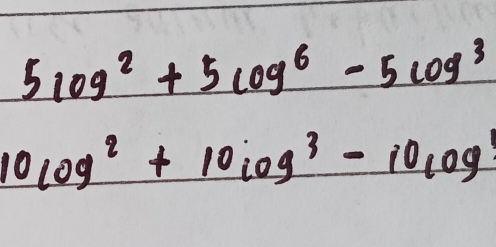 5 log² + 5 log⁶ - 5 log³
10 log² + 10 log³ - 10 log